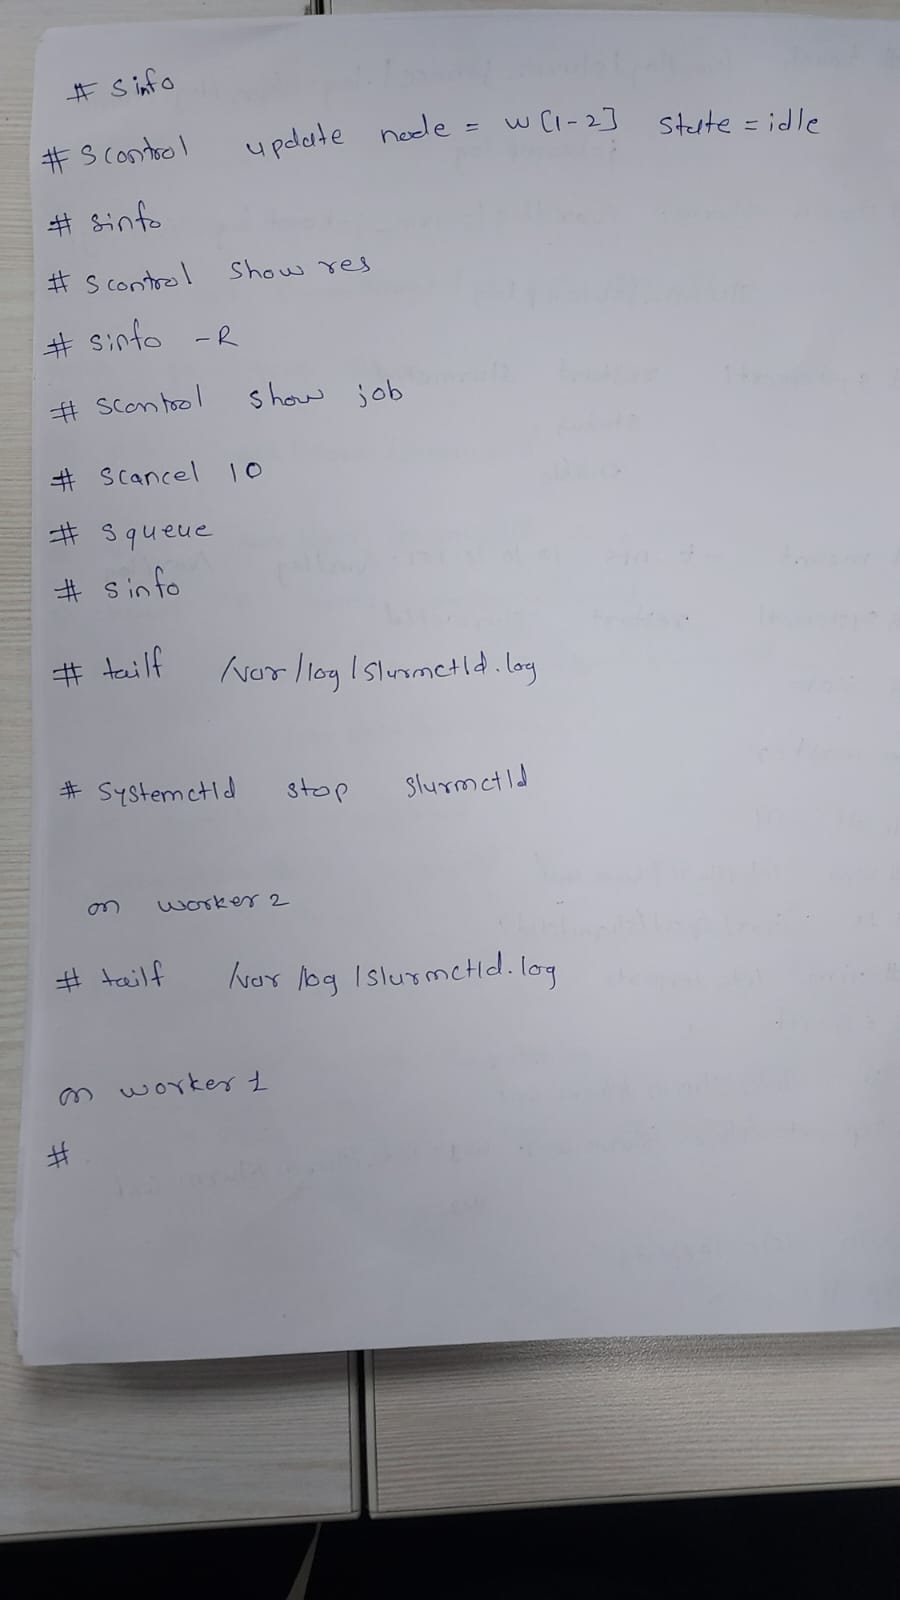 # sinfo
# Scontrol update node = w[1-2] state = idle
# sinfo
# scontrol show res
# sinfo -R
# scontrol show job
# scancel 10
# squeue
# sinfo
# tailf /var/log/slurmctld.log
# Systemctld stop slurmctld
on worker 2
# tailf /var/log/slurmctld.log
on worker 1
#